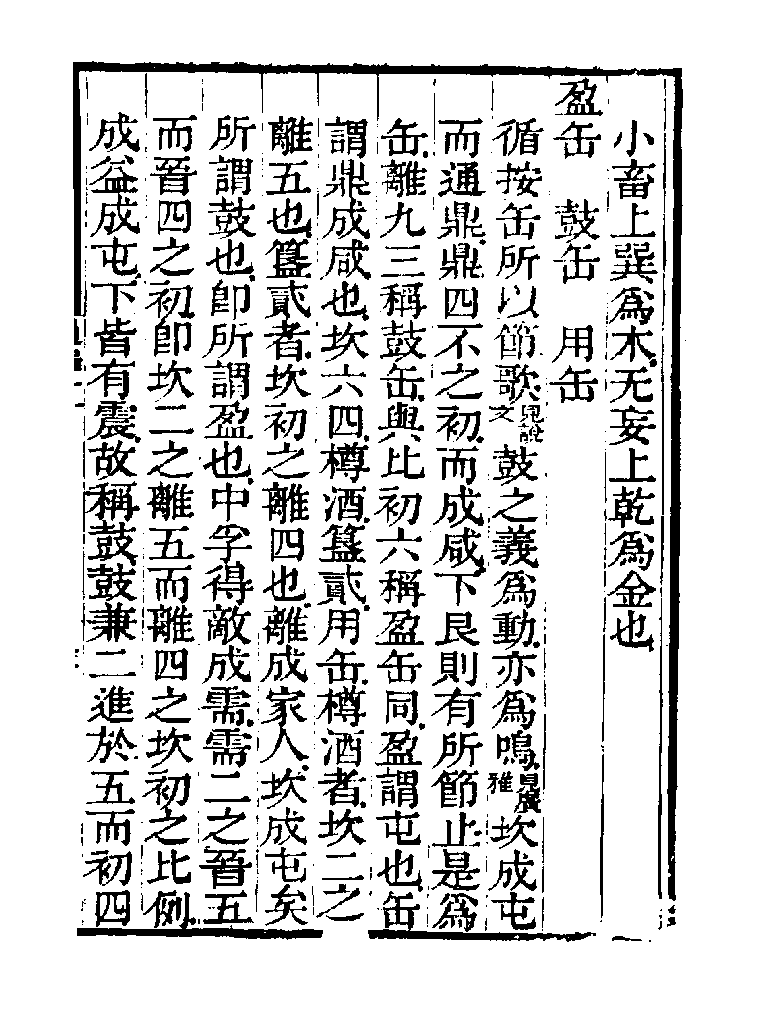 小畜上巽爲木无妄上乾爲金也
盈缶　鼓缶　用缶
循按缶所以節歌見說文鼓之義爲動亦爲鳴見廣雅坎成屯
而通鼎鼎四不之初而成咸下艮則有所節止是爲
缶離九三稱鼓缶與比初六稱盈缶同盈謂屯也缶
謂鼎成咸也坎六四樽酒簋貳用缶樽酒者坎二之
離五也簋貳者坎初之離四也離成家人坎成屯矣
所謂鼓也卽所謂盈也中孚得敵成需需二之晉五
而晉四之初卽坎二之離五而離四之坎初之比例
成益成屯下皆有震故稱鼓鼓兼二進於五而初四